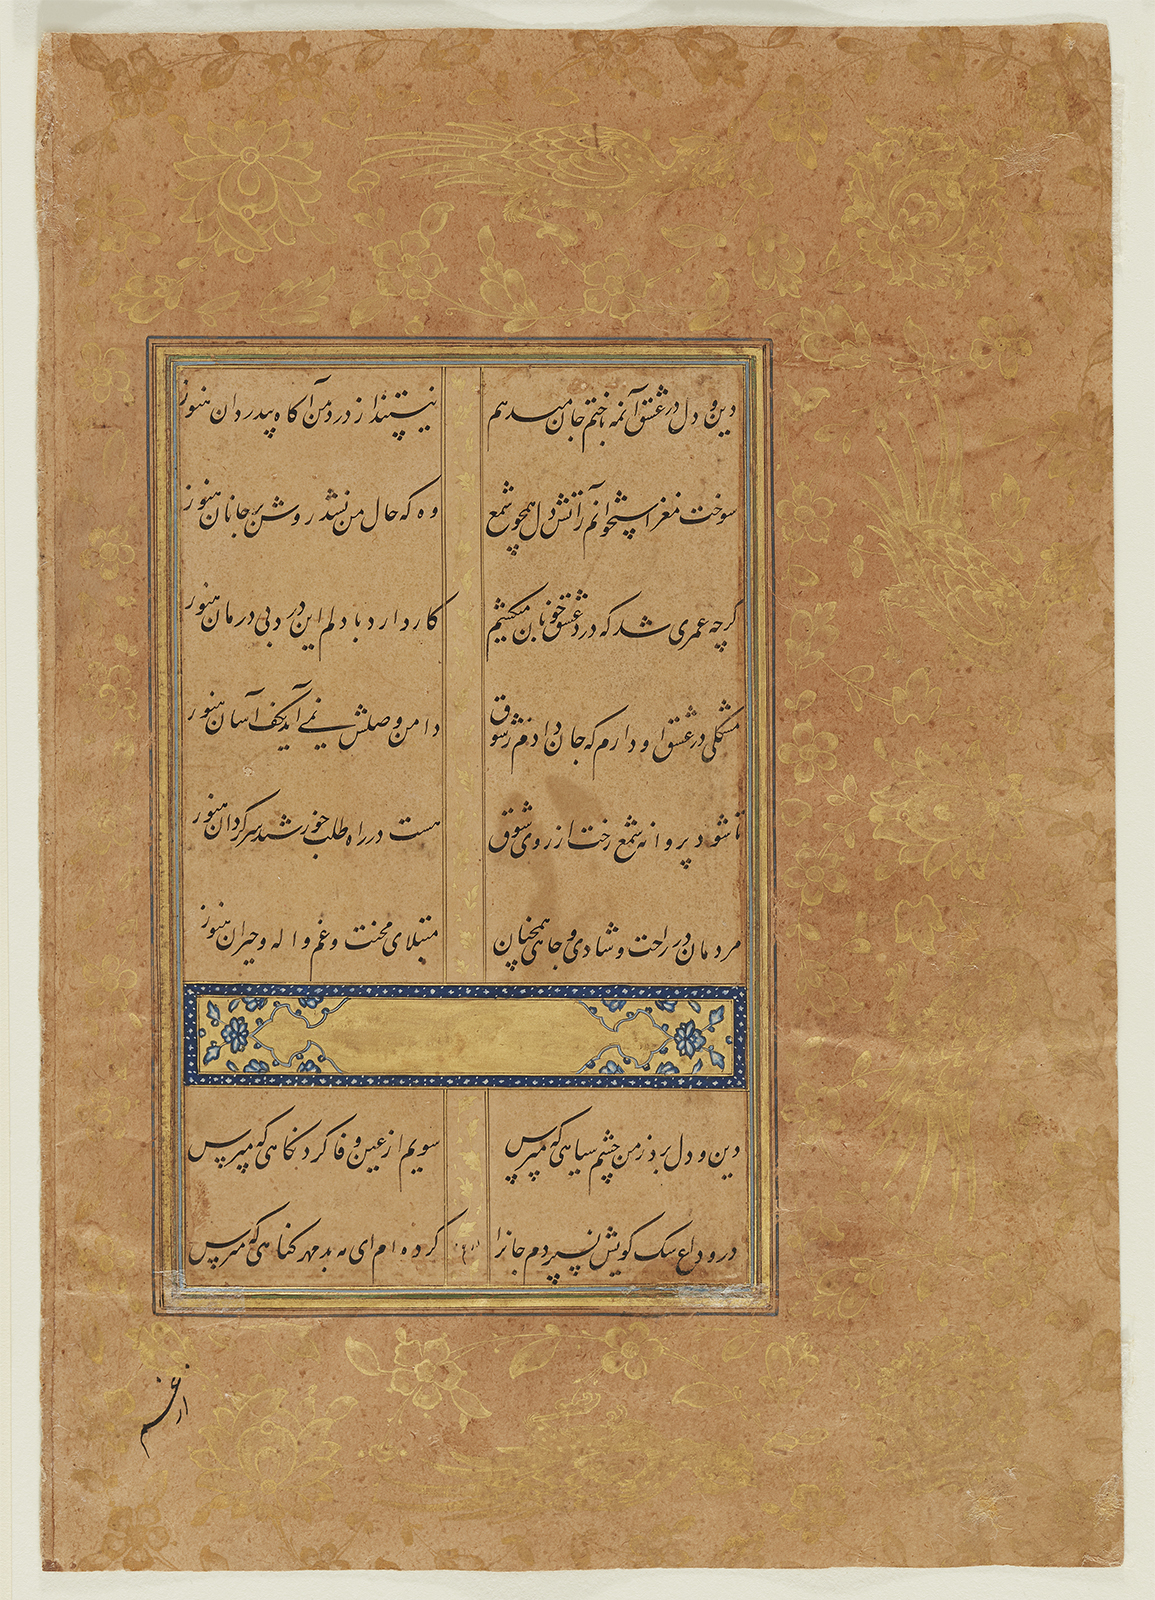 دین و دل در عشق آنمه باختم جان میدهم نیستند از درد من آگاه بیدردان هنوز
سوخت مغز استخوانم ز آتش دل همچو شمع وه که حال من نشد روشن بر جانان هنوز
گرچه عمری شد که درد عشق خوبان میکشیم کار دارد با دلم این درد بی درمان هنوز
مشکلی در عشق او دارم که جان دادم ز شوق دامن وصلش نمی آید بکف آسان هنوز
تا شود پروانه شمع رخت از روی شوق هست در راه طلب خورشید سرگردان هنوز
مردمان در راحت و شادی و جاهی همچنان مبتلای محنت و غم واله و حیران هنوز
دین و دل برد ز من چشم سیاهی که مپرس سویم از عین وفا کرد نگاهی که مپرس
در وداع سگ کویش نسپردم جانرا کرده ام ای مه بدمهر گناهی که مپرس
از غم